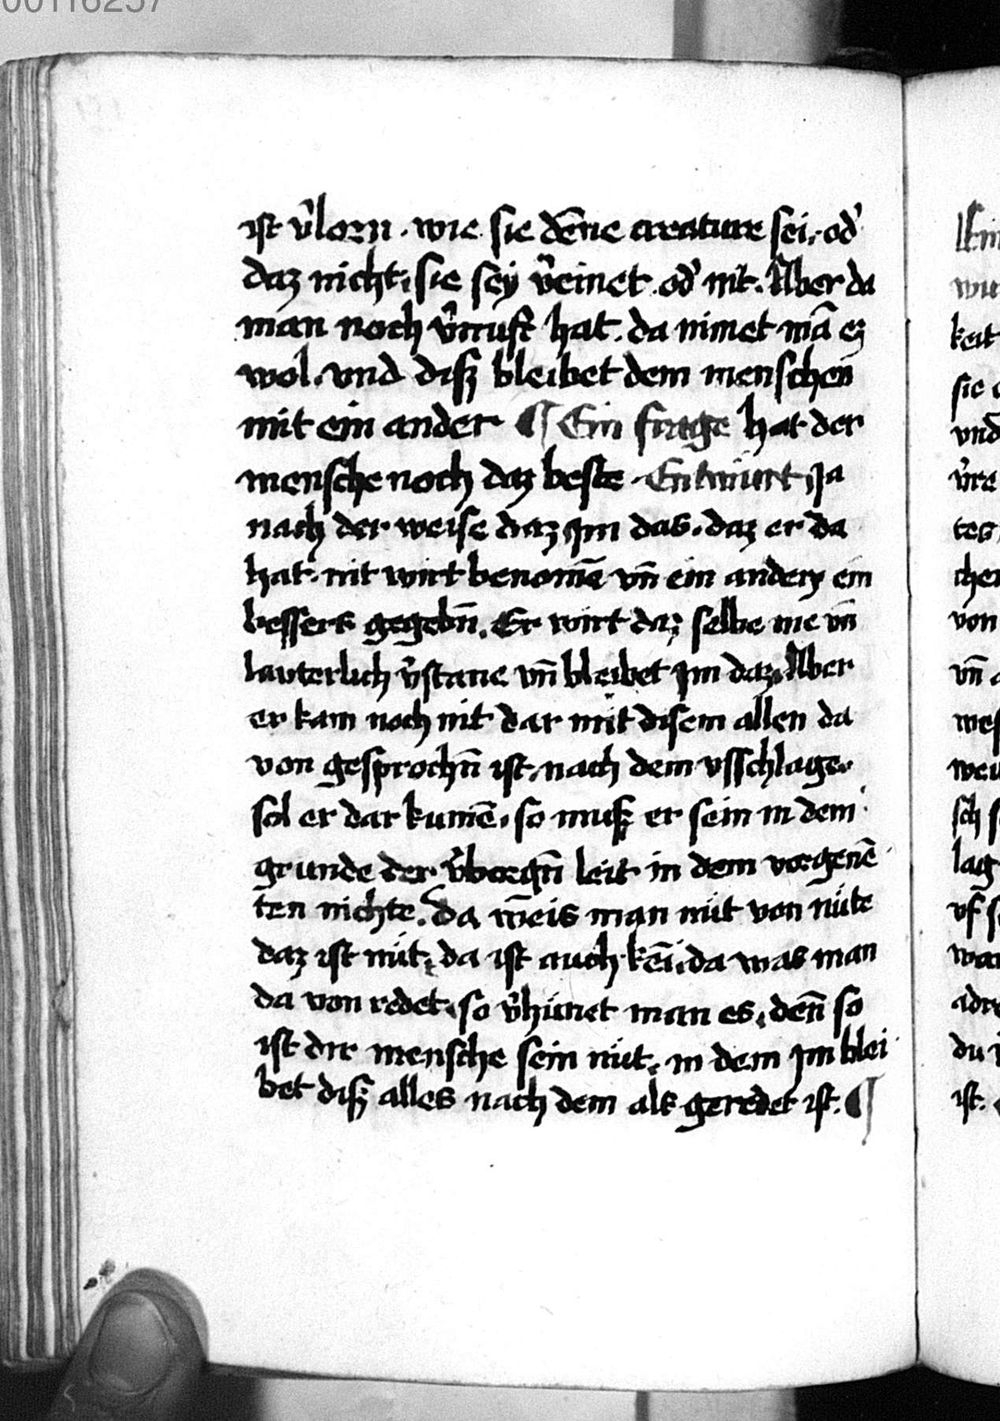 00116257
ist v̉lorn . wie sie dēne creature sei . od̉
daz nicht . sie sey v̉einet . od̉ nit . Aber da
man noch v̉nuft hat . da nimet mā ez
wol . vnd disz bleibet dem menschen
mit ein ander ¶ Ein frage hat der
mensche noch daz beste . Entwurt . Ja
nach der weise daz jm das . daz er da
hat . nit wirt benomē vn̄ ein anderz ein
bessers gegebn̄ . Er wirt daz selbe me vn̄
lauterlich v̉stane vn̄ bleibet jm daz . Aber
er kam noch nit dar mit disem allen da
von gesprochn̄ ist . nach dem vsschlage .
sol er dar kumē . so musz er sein in dem
grunde der v̉borgn̄ leit in dem vorgenē
ten nichte . da weis man nüt von nüte
daz ist nüt . da ist auch kēi . da was man
da von redet . so v̉hünet man es . den̄ so
ist der mensche sein nüt . in dem jm blei
bet disz alles nach dem als geredet ist . ¶
keit
sie
vnd
von
vn̄
ist .